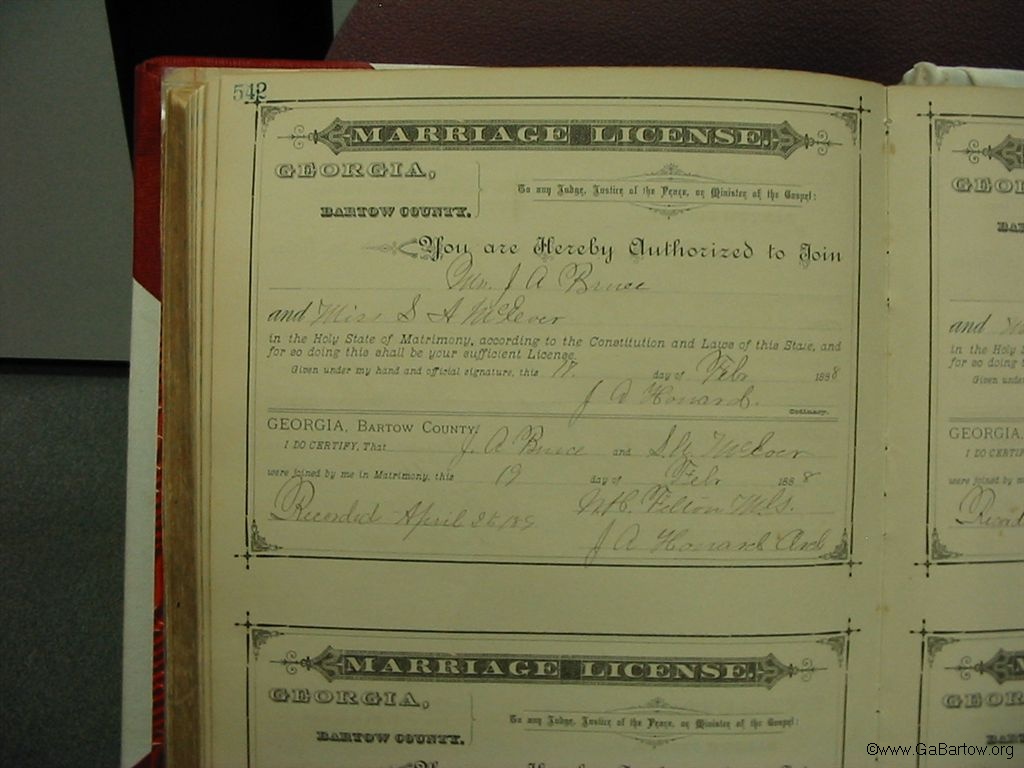 542
MARRIAGE LICENSE.
GEORGIA,
BARTOW COUNTY.
To any Judge, Justice of the Peace, or Minister of the Gospel:
You are Hereby Authorized to Join
Mr. J A Bruce
and Miss S A McEver
in the Holy State of Matrimony, according to the Constitution and Laws of this State, and
for so doing this shall be your sufficient License.
Given under my hand and official signature, this 17 day of Feb 1888
J A Howard
Ordinary.
GEORGIA, BARTOW COUNTY.
I DO CERTIFY, That J. A Bruce and S.A. McEver
were joined by me in Matrimony, this 19 day of Feb 1888
W H. Felton M.G.
Recorded April
J A Howard Ord
MARRIAGE LICENSE.
GEORGIA,
BARTOW COUNTY.
To any Judge, Justice of the Peace, or Minister of the Gospel:
GEORG
and
in the Holy
for so doing
Given under
GEORGIA
I DO CERTI
were joined by m
Record
GEOR
©www.GaBartow.org